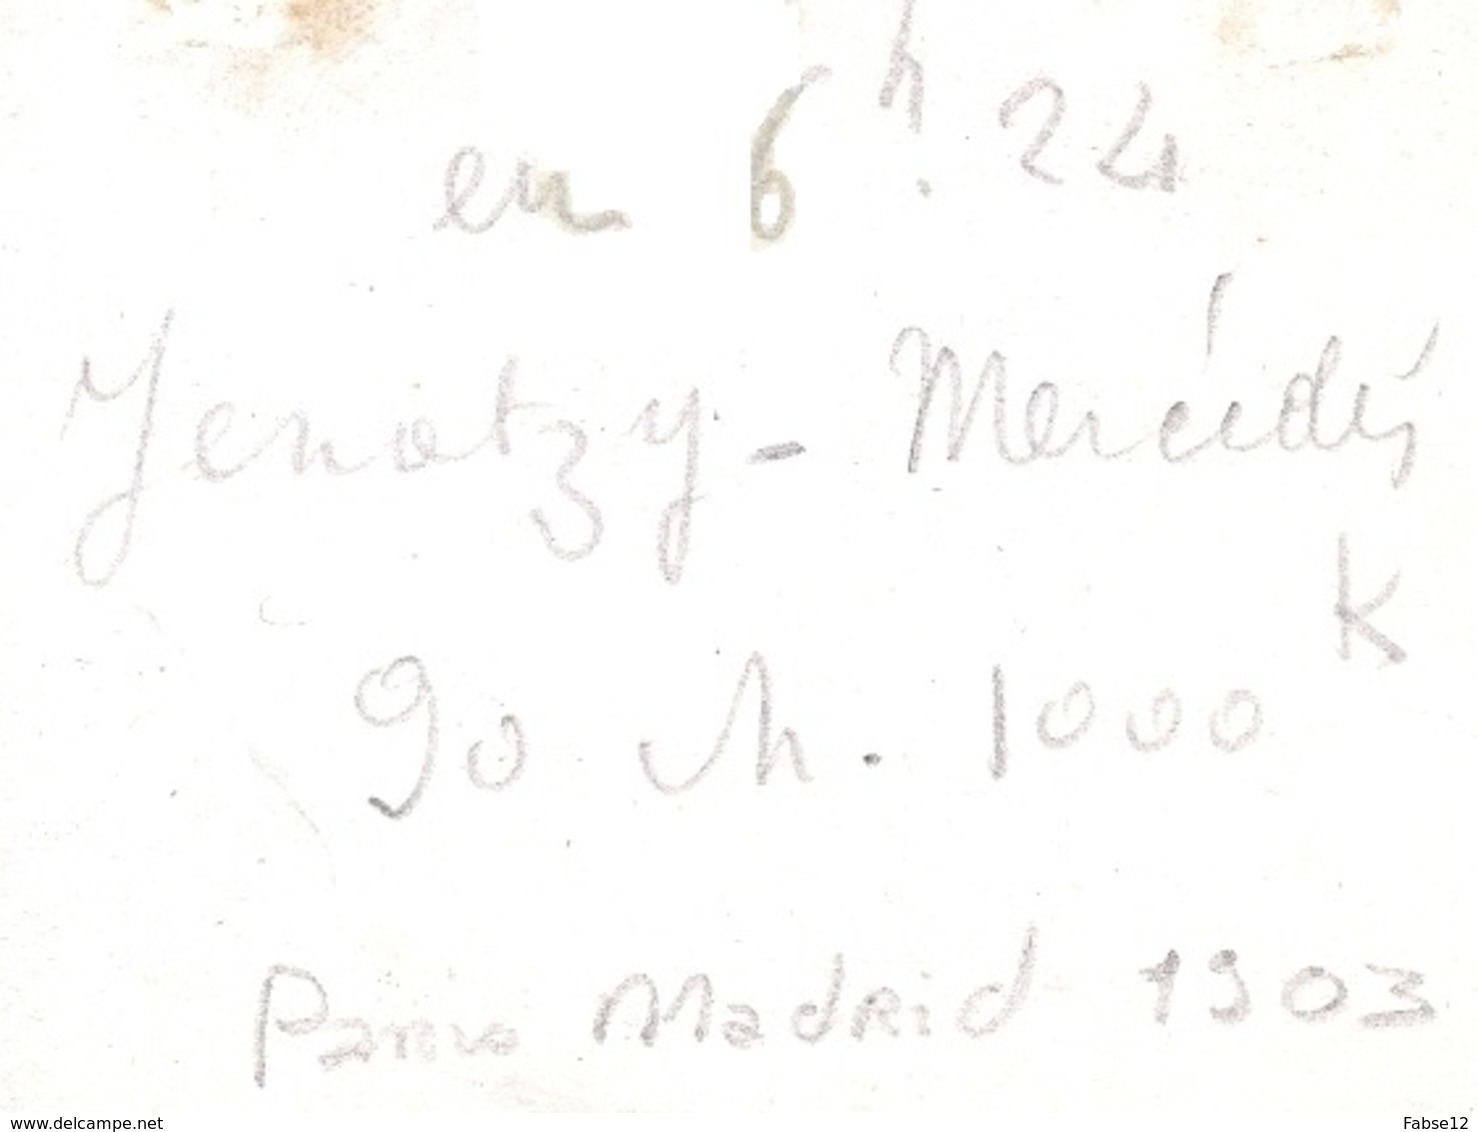 en 6h. 24
Jenatzy - Mercédès
90 ch. 1000 K
Paris Madrid 1903
www.delcampe.net
Fabse12